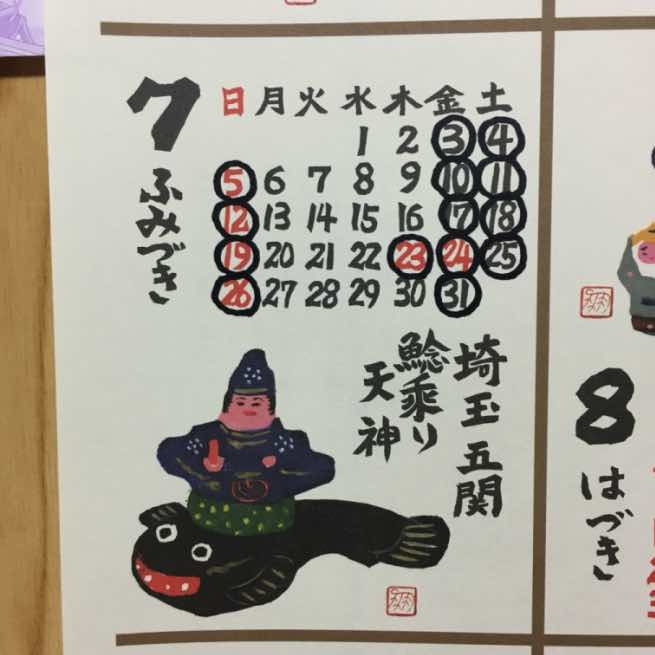 7
ふみづき
日 月 火 水 木 金 土
1 2 3 4
5 6 7 8 9 10 11
12 13 14 15 16 17 18
19 20 21 22 23 24 25
26 27 28 29 30 31
埼玉五関
鯰乗り
天神
8
はづき